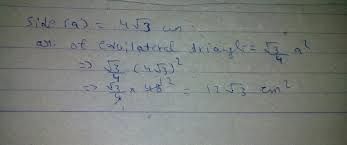 side (a) = 4√3 cm
are of Equilateral triangle = √3/4 a²
⇒ √3/4 (4√3)²
⇒ √3/4 × 48 12 = 12√3 cm²